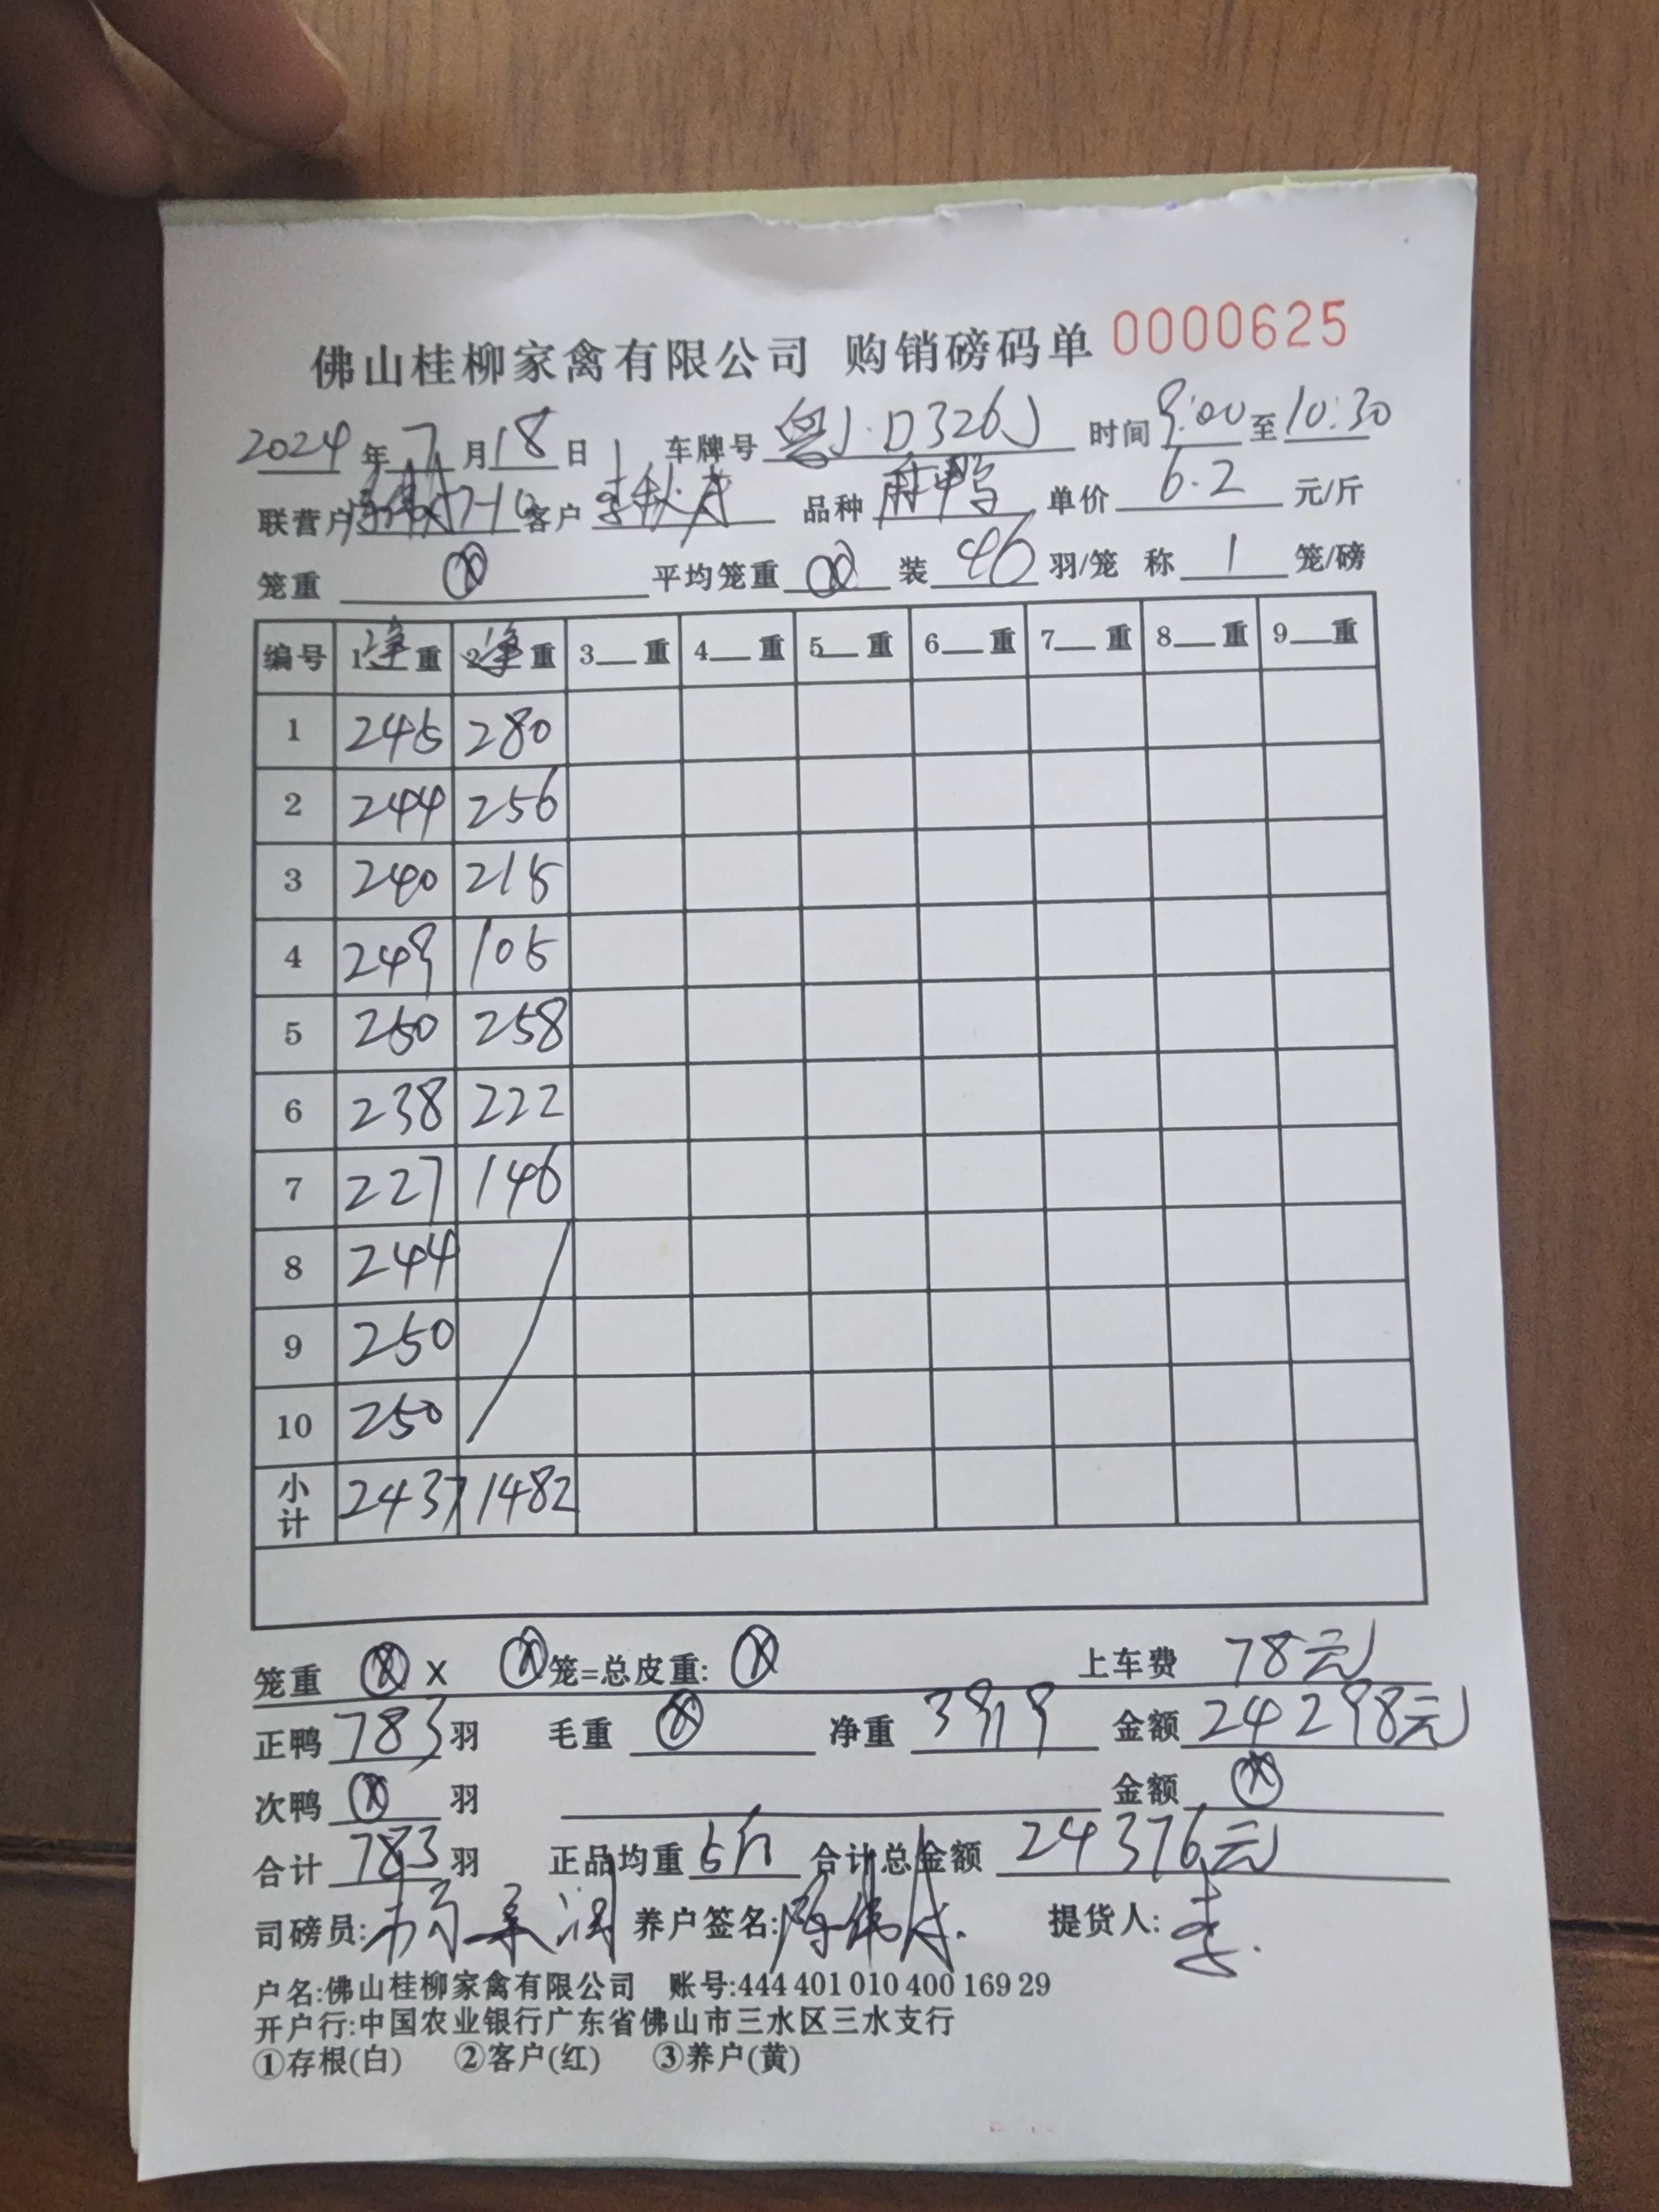 佛山桂柳家禽有限公司 购销磅码单 0000625
2024年7月18日 车牌号 粤J·D326J 时间 9:00至10:30
联营户 7-10 客户 李秋 品种 麻鸭 单价 6.2 元/斤
笼重 ⓧ 平均笼重 ⓧ 装 46 羽/笼 称 1 笼/磅
编号 1净重 2净重 3__重 4__重 5__重 6__重 7__重 8__重 9__重
1 245 280
2 244 256
3 240 215
4 249 105
5 250 258
6 238 222
7 227 146
8 244
9 250
10 250
小计 2437 1482
笼重 ⓧ X ⓧ 笼=总皮重: ⓧ 上车费 78元
正鸭 783 羽 毛重 ⓧ 净重 3919 金额 24298元
次鸭 ⓧ 羽 金额 ⓧ
合计 783 羽 正品均重 5斤 合计总金额 24376元
司磅员: 养户签名: 陈 提货人: 李
户名:佛山桂柳家禽有限公司 账号:444 401 010 400 169 29
开户行:中国农业银行广东省佛山市三水区三水支行
①存根(白) ②客户(红) ③养户(黄)